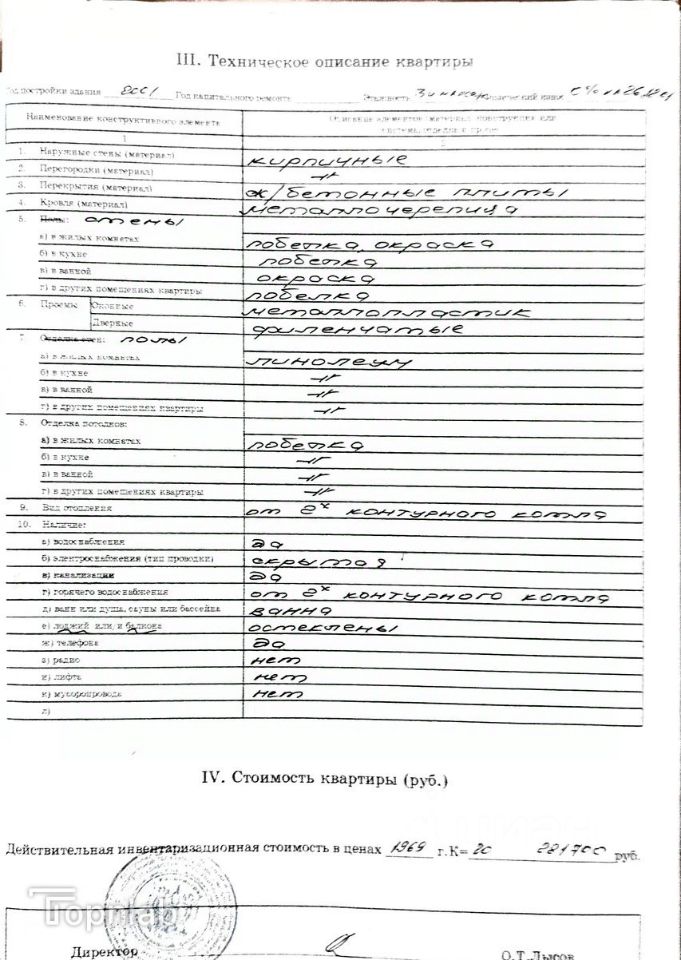 III. Техническое описание квартиры
Год постройки здания 2001 Год капитального ремонта Этажность 5% на 26.12.01
Наименование конструктивного элемента Описание элементов (материал, конструкция или система, отделка и прочее
1 2
1. Наружные стены (материал) кирпичные
2. Перегородки (материал) -//-
3. Перекрытия (материал) ж/бетонные плиты
4. Кровля (материал) металлочерепица
5. Полы: стены
а) в жилых комнатах побелка, окраска
б) в кухне побелка
в) в ванной окраска
г) в других помещениях квартиры побелка
6. Проемы Оконные металлопластик
Дверные филенчатые
7. Отделка стен: полы
а) в жилых комнатах линолеум
б) в кухне -//-
в) в ванной -//-
г) в других помещениях квартиры -//-
8. Отделка потолков:
а) в жилых комнатах побелка
б) в кухне -//-
в) в ванной -//-
г) в других помещениях квартиры -//-
9. Вид отопления от 2х контурного котла
10. Наличие:
а) водоснабжения да
б) электроснабжения (тип проводки) скрытая
в) канализации да
г) горячего водоснабжения от 2х контурного котла
д) ванн или душа, сауны или бассейна ванна
е) лоджий или/и балкона остеклены
ж) телефона да
з) радио нет
и) лифта нет
к) мусоропровода нет
л)
IV. Стоимость квартиры (руб.)
Действительная инвентаризационная стоимость в ценах 1969 г. К= 20 221700 руб.
Директор О.Т.Лысов